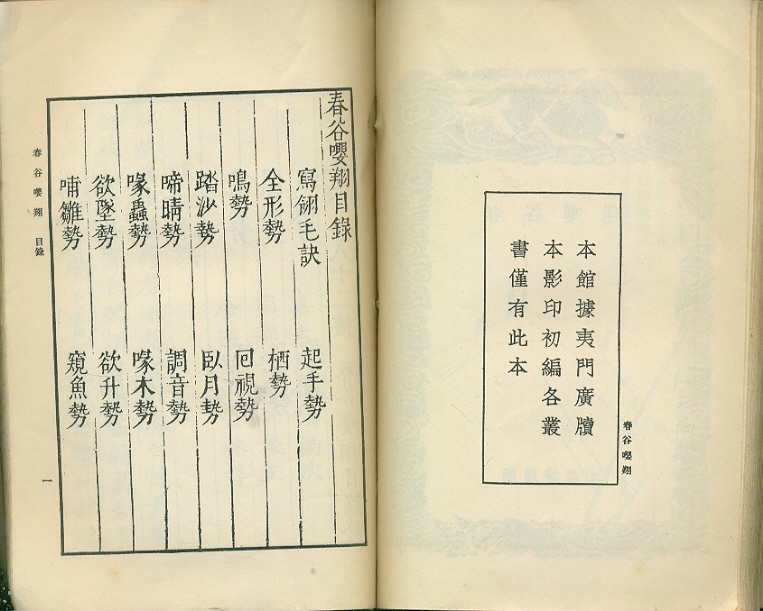 本館據夷門廣牘
本影印初編各叢
書僅有此本
春谷嚶翔
春谷嚶翔目錄
寫翎毛訣
起手勢
全形勢
栖勢
鳴勢
回視勢
踏沙勢
臥月勢
啼晴勢
調音勢
喙蟲勢
喙木勢
欲墜勢
欲升勢
哺雛勢
窺魚勢
春谷嚶翔 目錄
一